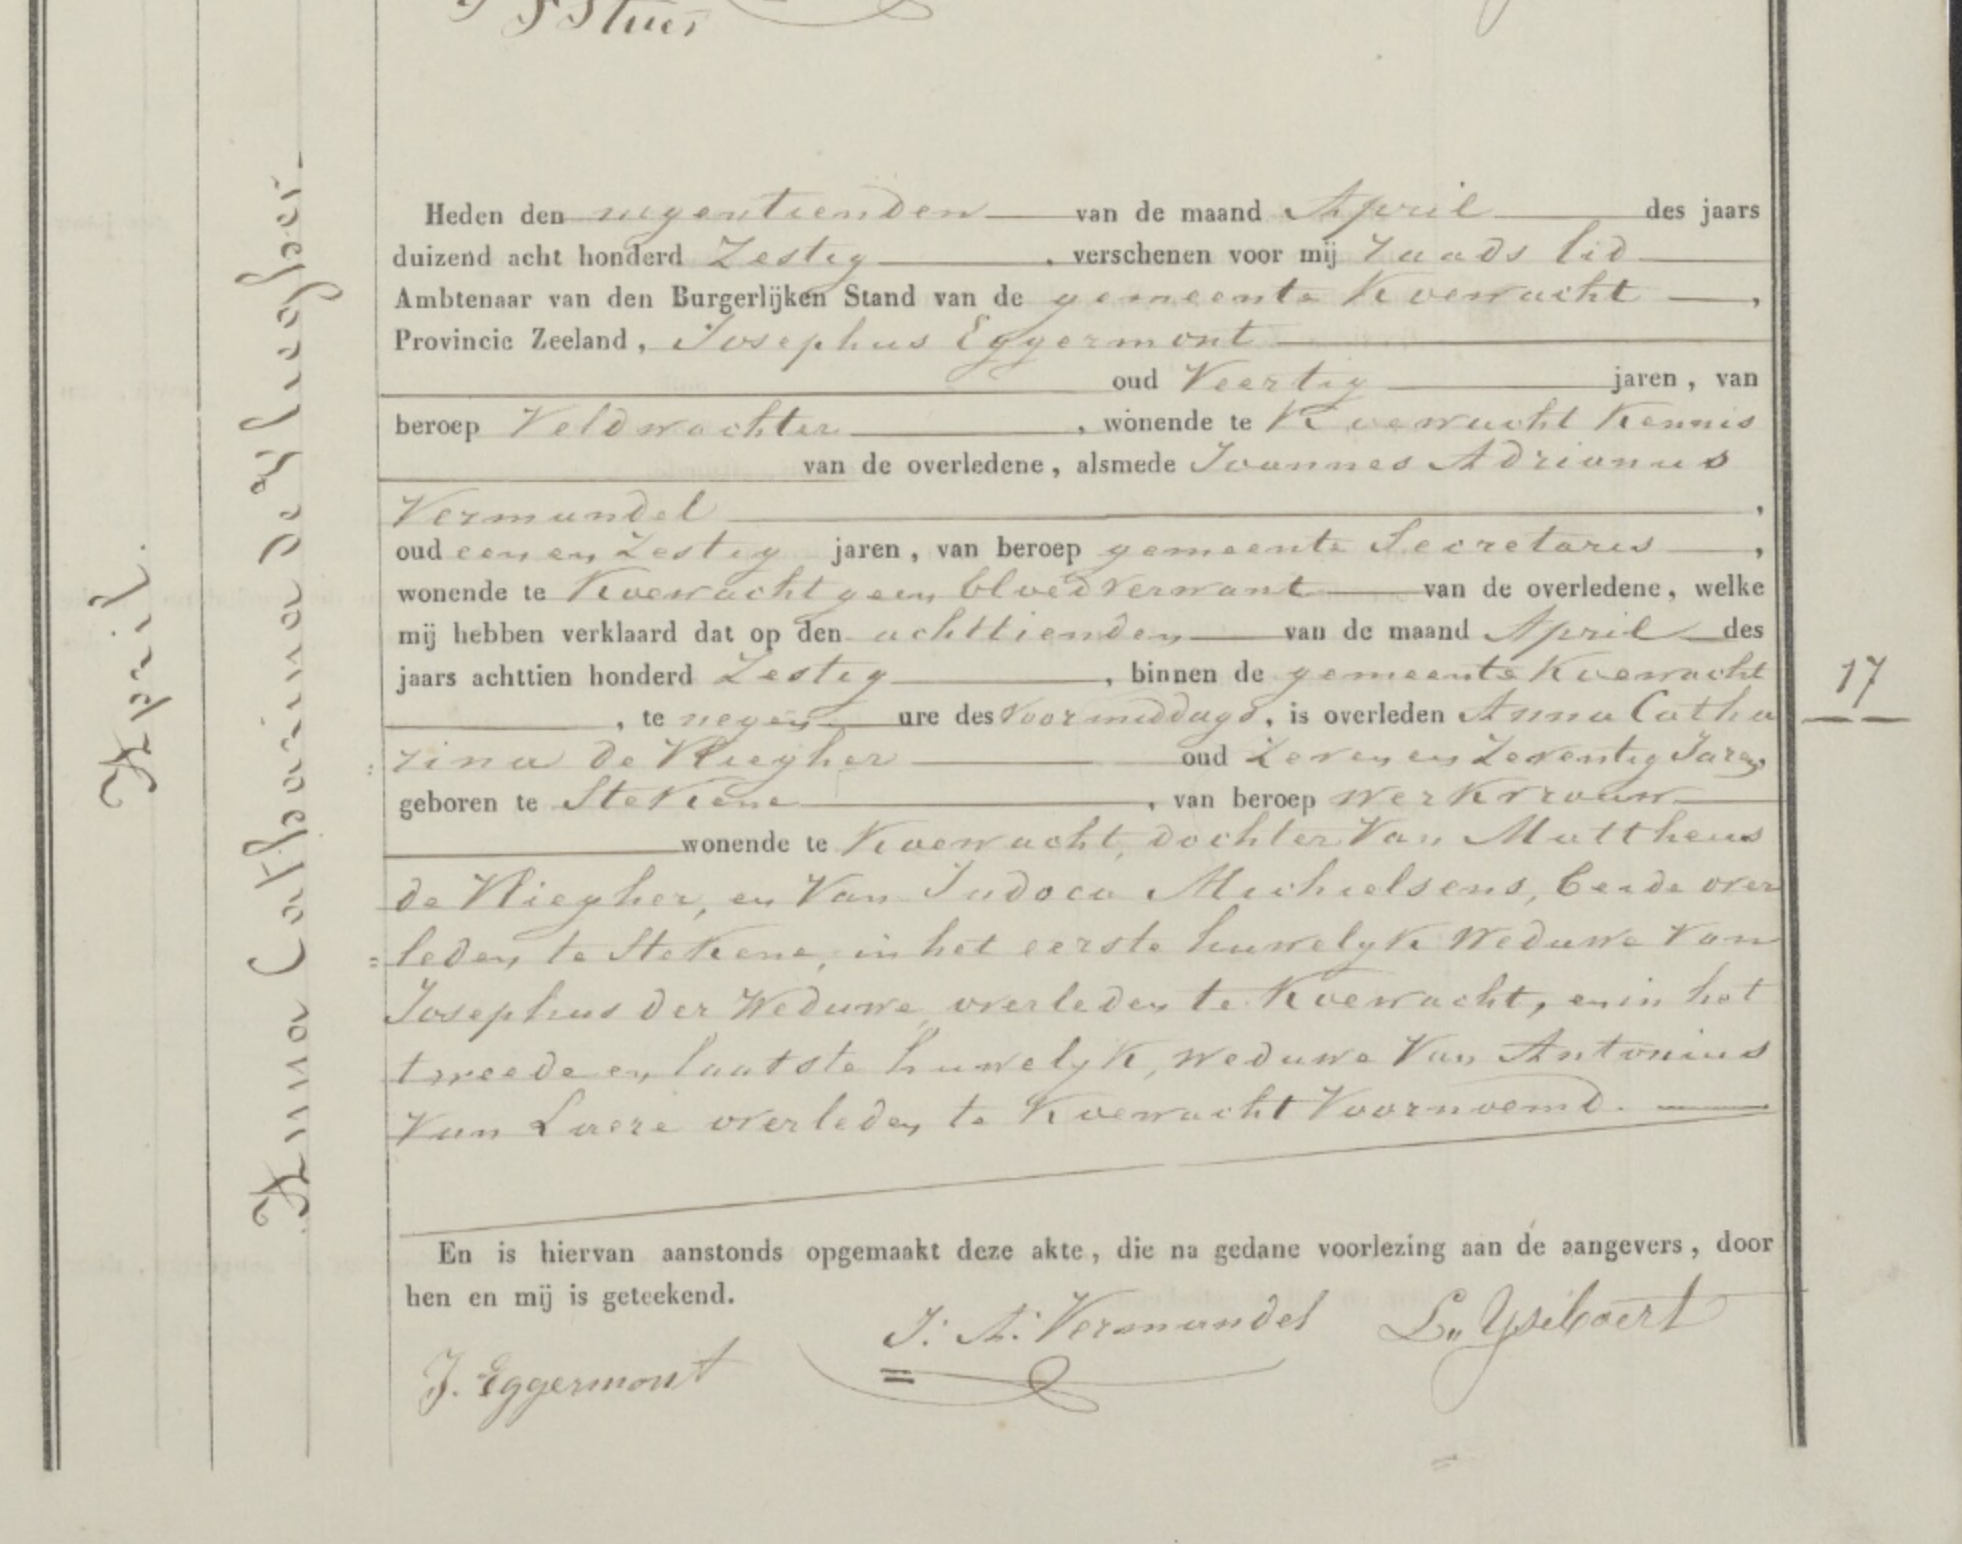 Stuer
Heden den negentienden van de maand April des jaars
duizend acht honderd Zestig, verschenen voor mij raads lid
Ambtenaar van den Burgerlijken Stand van de gemeente Koewacht,
Provincie Zeeland, Josephus Eggermont
oud Veertig jaren, van
beroep Veldwachter, wonende te Koewacht Kennis
van de overledene, alsmede Joannes Adrianus
Vermandel,
oud een en Zestig jaren, van beroep gemeente Secretaris,
wonende te Koewacht geen bloedverwant van de overledene, welke
mij hebben verklaard dat op den achttienden van de maand April des
jaars achttien honderd Zestig, binnen de gemeente Koewacht
, te negen ure des Voormiddags, is overleden Anna Catha
:rina de Vliegher oud Zeven en Zeventig Jaren,
geboren te Stekene, van beroep werkvrouw
wonende te Koewacht, dochter Van Mattheus
de Vliegher, en Van Judoca Michielsens, beide over
=leden te Stekene, in het eerste huwelyk Weduwe Van
Josephus der Weduwe, overleden te Koewacht, en in het
tweede en laatste huwelyk, weduwe Van Antonius
Van Laere overleden te Koewacht Voornoemd.
En is hiervan aanstonds opgemaakt deze akte, die na gedane voorlezing aan de aangevers, door
hen en mij is geteekend.
J. A. Vermandel L. Ysebaert
J. Eggermont
April.
Anna Catharina de Vliegher.
17